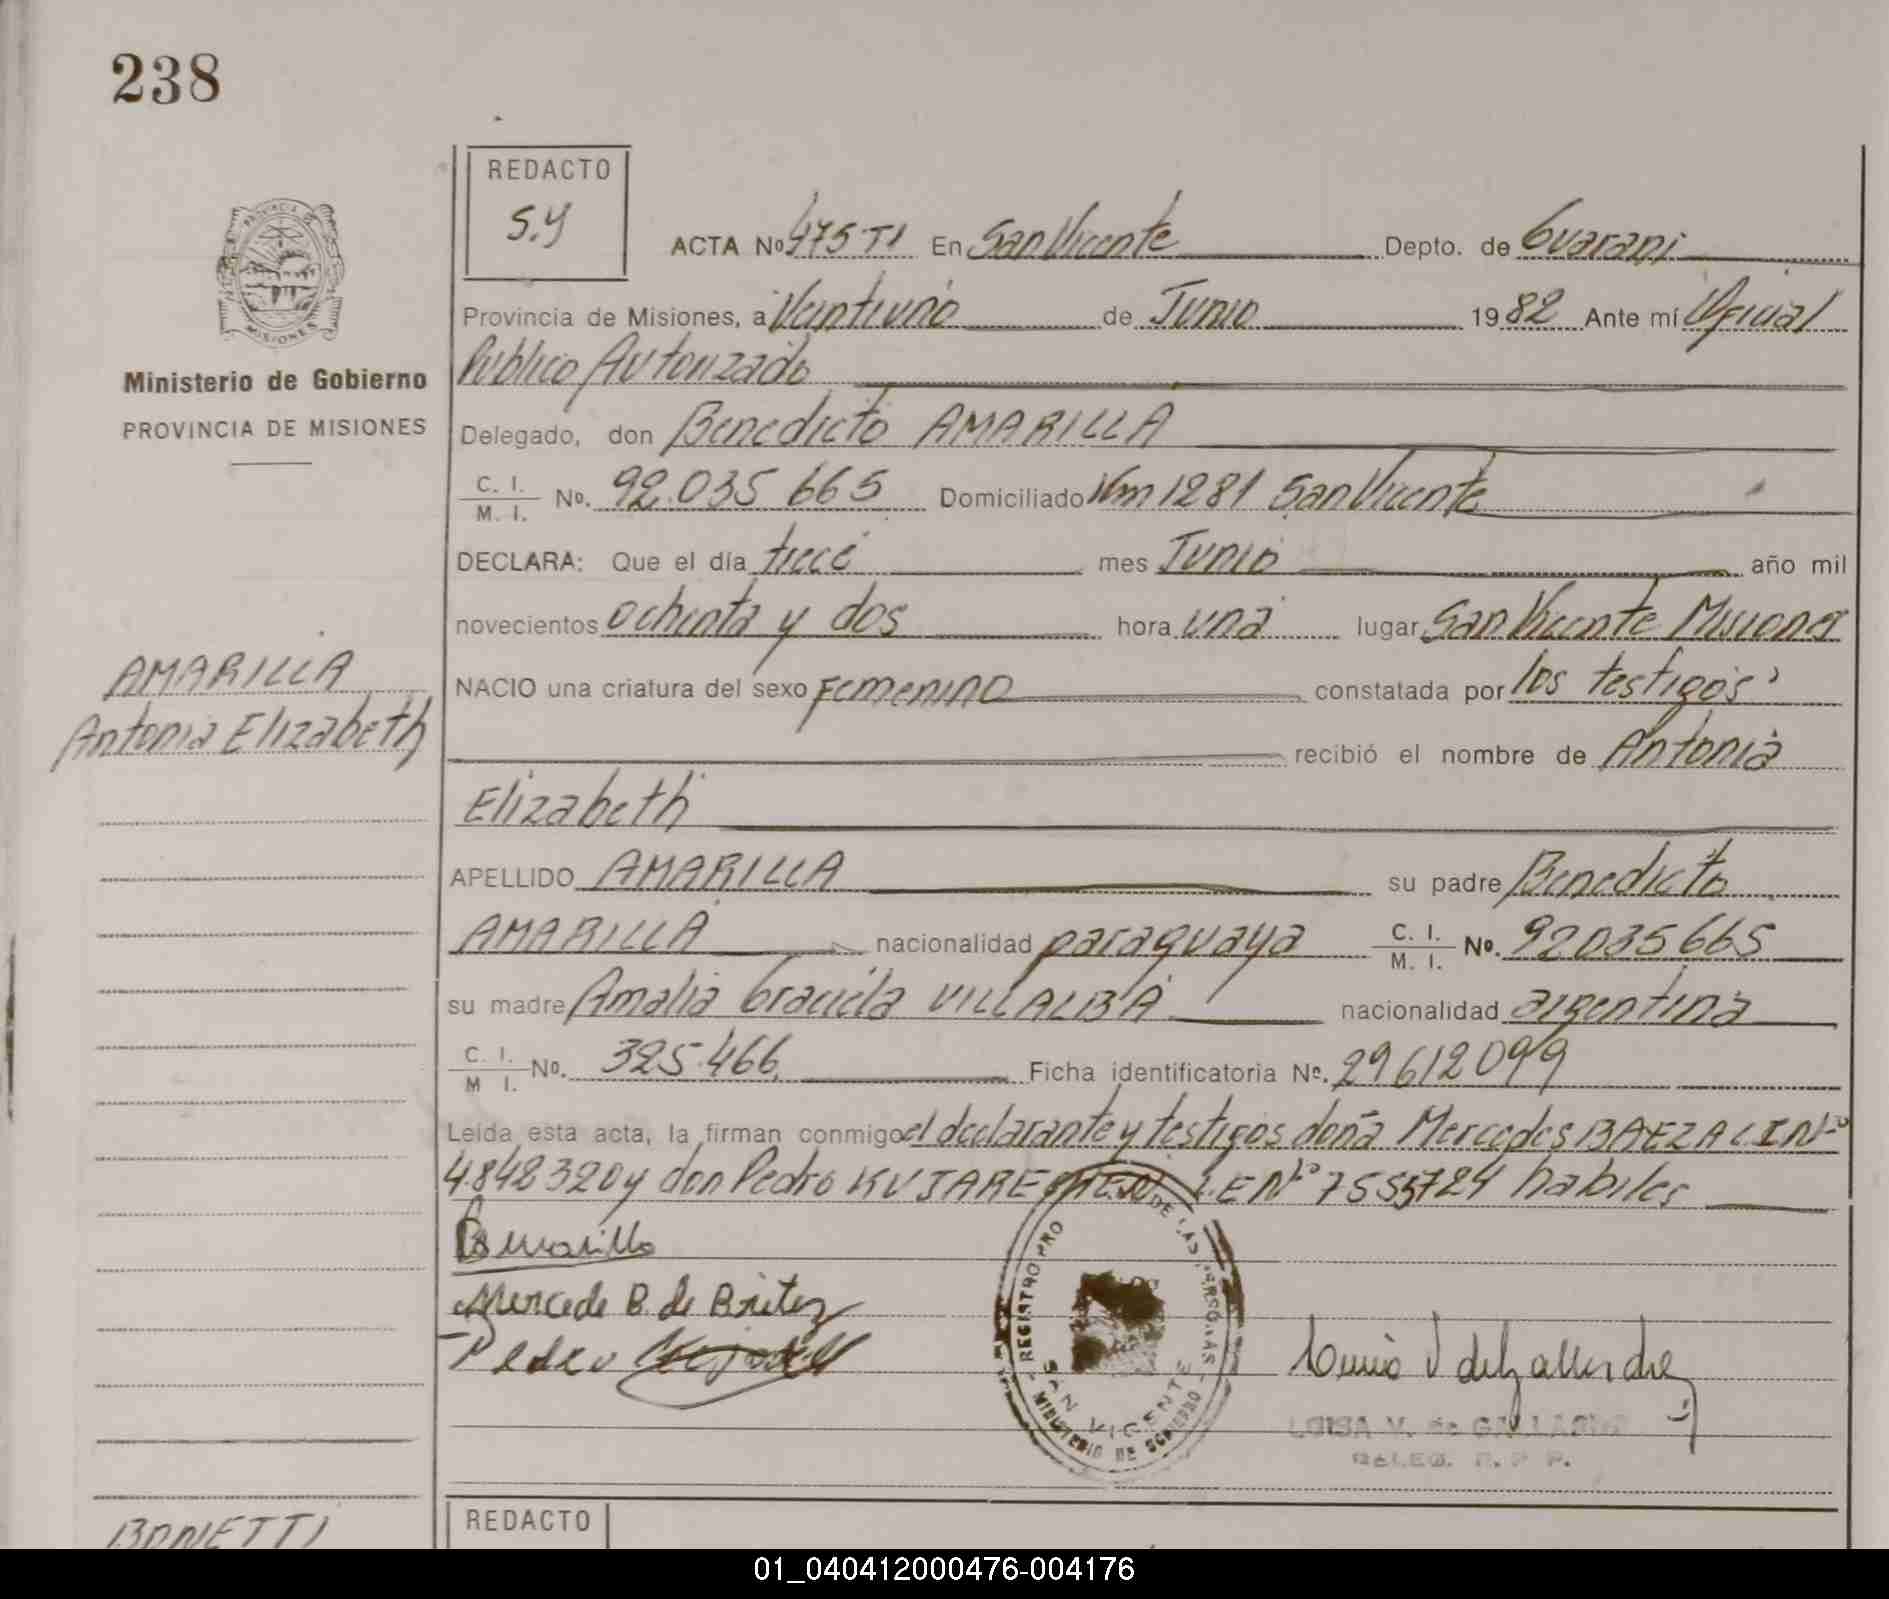 238
REDACTO
S.Y
ACTA No 475 TI En San Vicente Depto. de Guarani
PROVINCIA DE MISIONES
Provincia de Misiones, a Veintiuno de Junio 1982 Ante mí Oficial
Publico Autorizado
Ministerio de Gobierno
PROVINCIA DE MISIONES
Delegado, don Benedicto AMARILLA
C. I. / M. I. No. 92.035 665 Domiciliado Km 1281 San Vicente
DECLARA: Que el día trece mes Junio año mil
novecientos ochenta y dos hora una lugar San Vicente Misiones
AMARILLA
Antonia Elizabeth
NACIO una criatura del sexo Femenino constatada por los testigos
recibió el nombre de Antonia
Elizabeth
APELLIDO AMARILLA su padre Benedicto
AMARILLA nacionalidad paraguaya C. I. / M. I. No. 92035665
su madre Amalia Graciela VILLALBA nacionalidad argentina
C. I. / M I. No. 325.466 Ficha identificatoria No. 29612099
Leída esta acta, la firman conmigo el declarante y testigos doña Mercedes BAEZA C I Nº
4.848320 y don Pedro L E Nº habiles
B Amarilla
Mercede B. de Britez
Pedro
REGISTRO PRO DE LAS PERSONAS
SAN VICENTE
MINISTERIO DE GOBIERNO
LUISA V. de
DELEG. R. P. P.
BONETTI
REDACTO
01_040412000476-004176